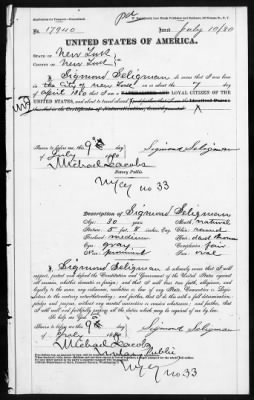 No. 17940
Issued July 10/80
UNITED STATES OF AMERICA.
STATE OF New York
COUNTY OF New York
I, Sigmund Seligman, do swear that I was born
in the City of New York on or about the day
of April 1850 that I am a LOYAL CITIZEN OF THE
UNITED STATES, and about to travel abroad
Sworn to before me, this 9th day
of July 1880
Sigmund Seligman
Michael Jacobs
Notary Public
NYCy no 33
Description of Sigmund Seligman
Age: 30 years
Mouth: natural
Stature: 5 ft. 8 inches, Eng.
Chin: round
Forehead: medium
Hair: dark brown
Eyes: gray
Complexion: fair
Nose: prominent
Face: oval
I, Sigmund Seligman do solemnly swear that I will
support, protect and defend the Constitution and Government of the United States against
all enemies, whether domestic or foreign; and that I will bear true faith, allegiance and
loyalty to the same, any ordinance, resolution or law of any State, Convention or Legis-
lature to the contrary notwithstanding; and further, that I do this with a full determination,
pledge and purpose, without any mental reservation or evasion whatsoever; and further, that
I will well and faithfully perform all the duties which may be required of me by law.
So help me God.
Sworn to before me, this 9th day
of July 1880
Sigmund Seligman
Michael Jacobs
Notary Public
NYCy no 33